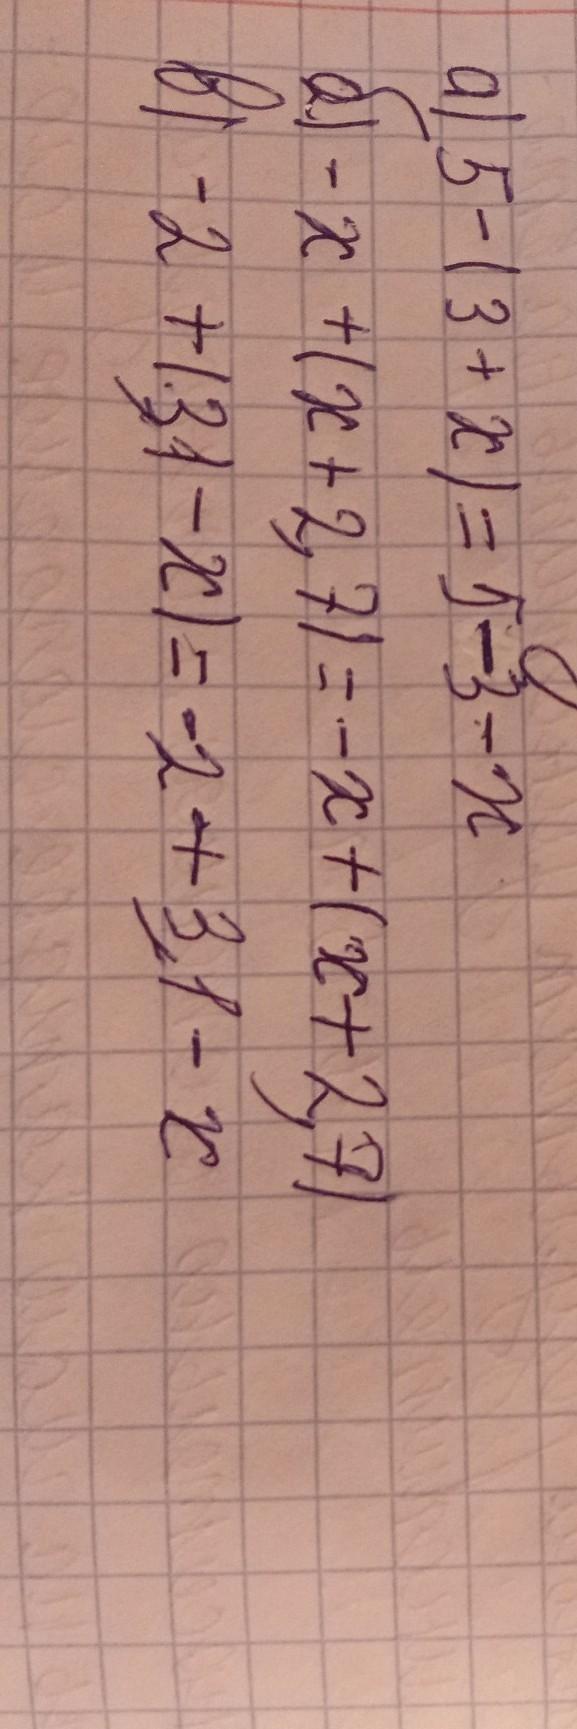 а) 5-(3+x)=5-3-x
б) -x+(x+2,7)=-x+(x+2,7)
в) -2+(3,1-x)=-2+3,1-x